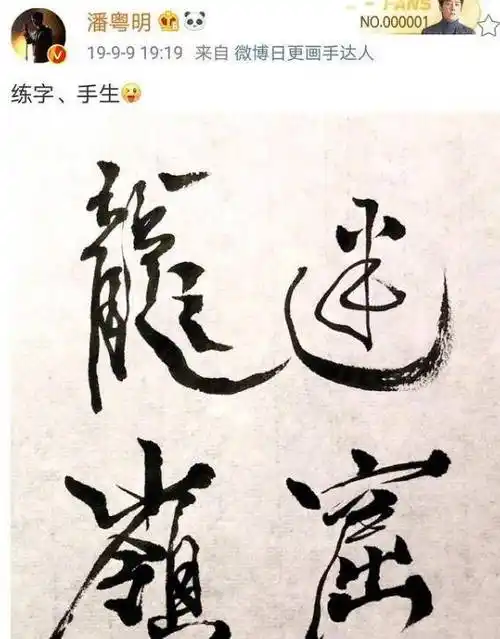 FANS
潘粤明
NO.000001
19-9-9 19:19 来自 微博日更画手达人
练字、手生
龍迷
嶺窟